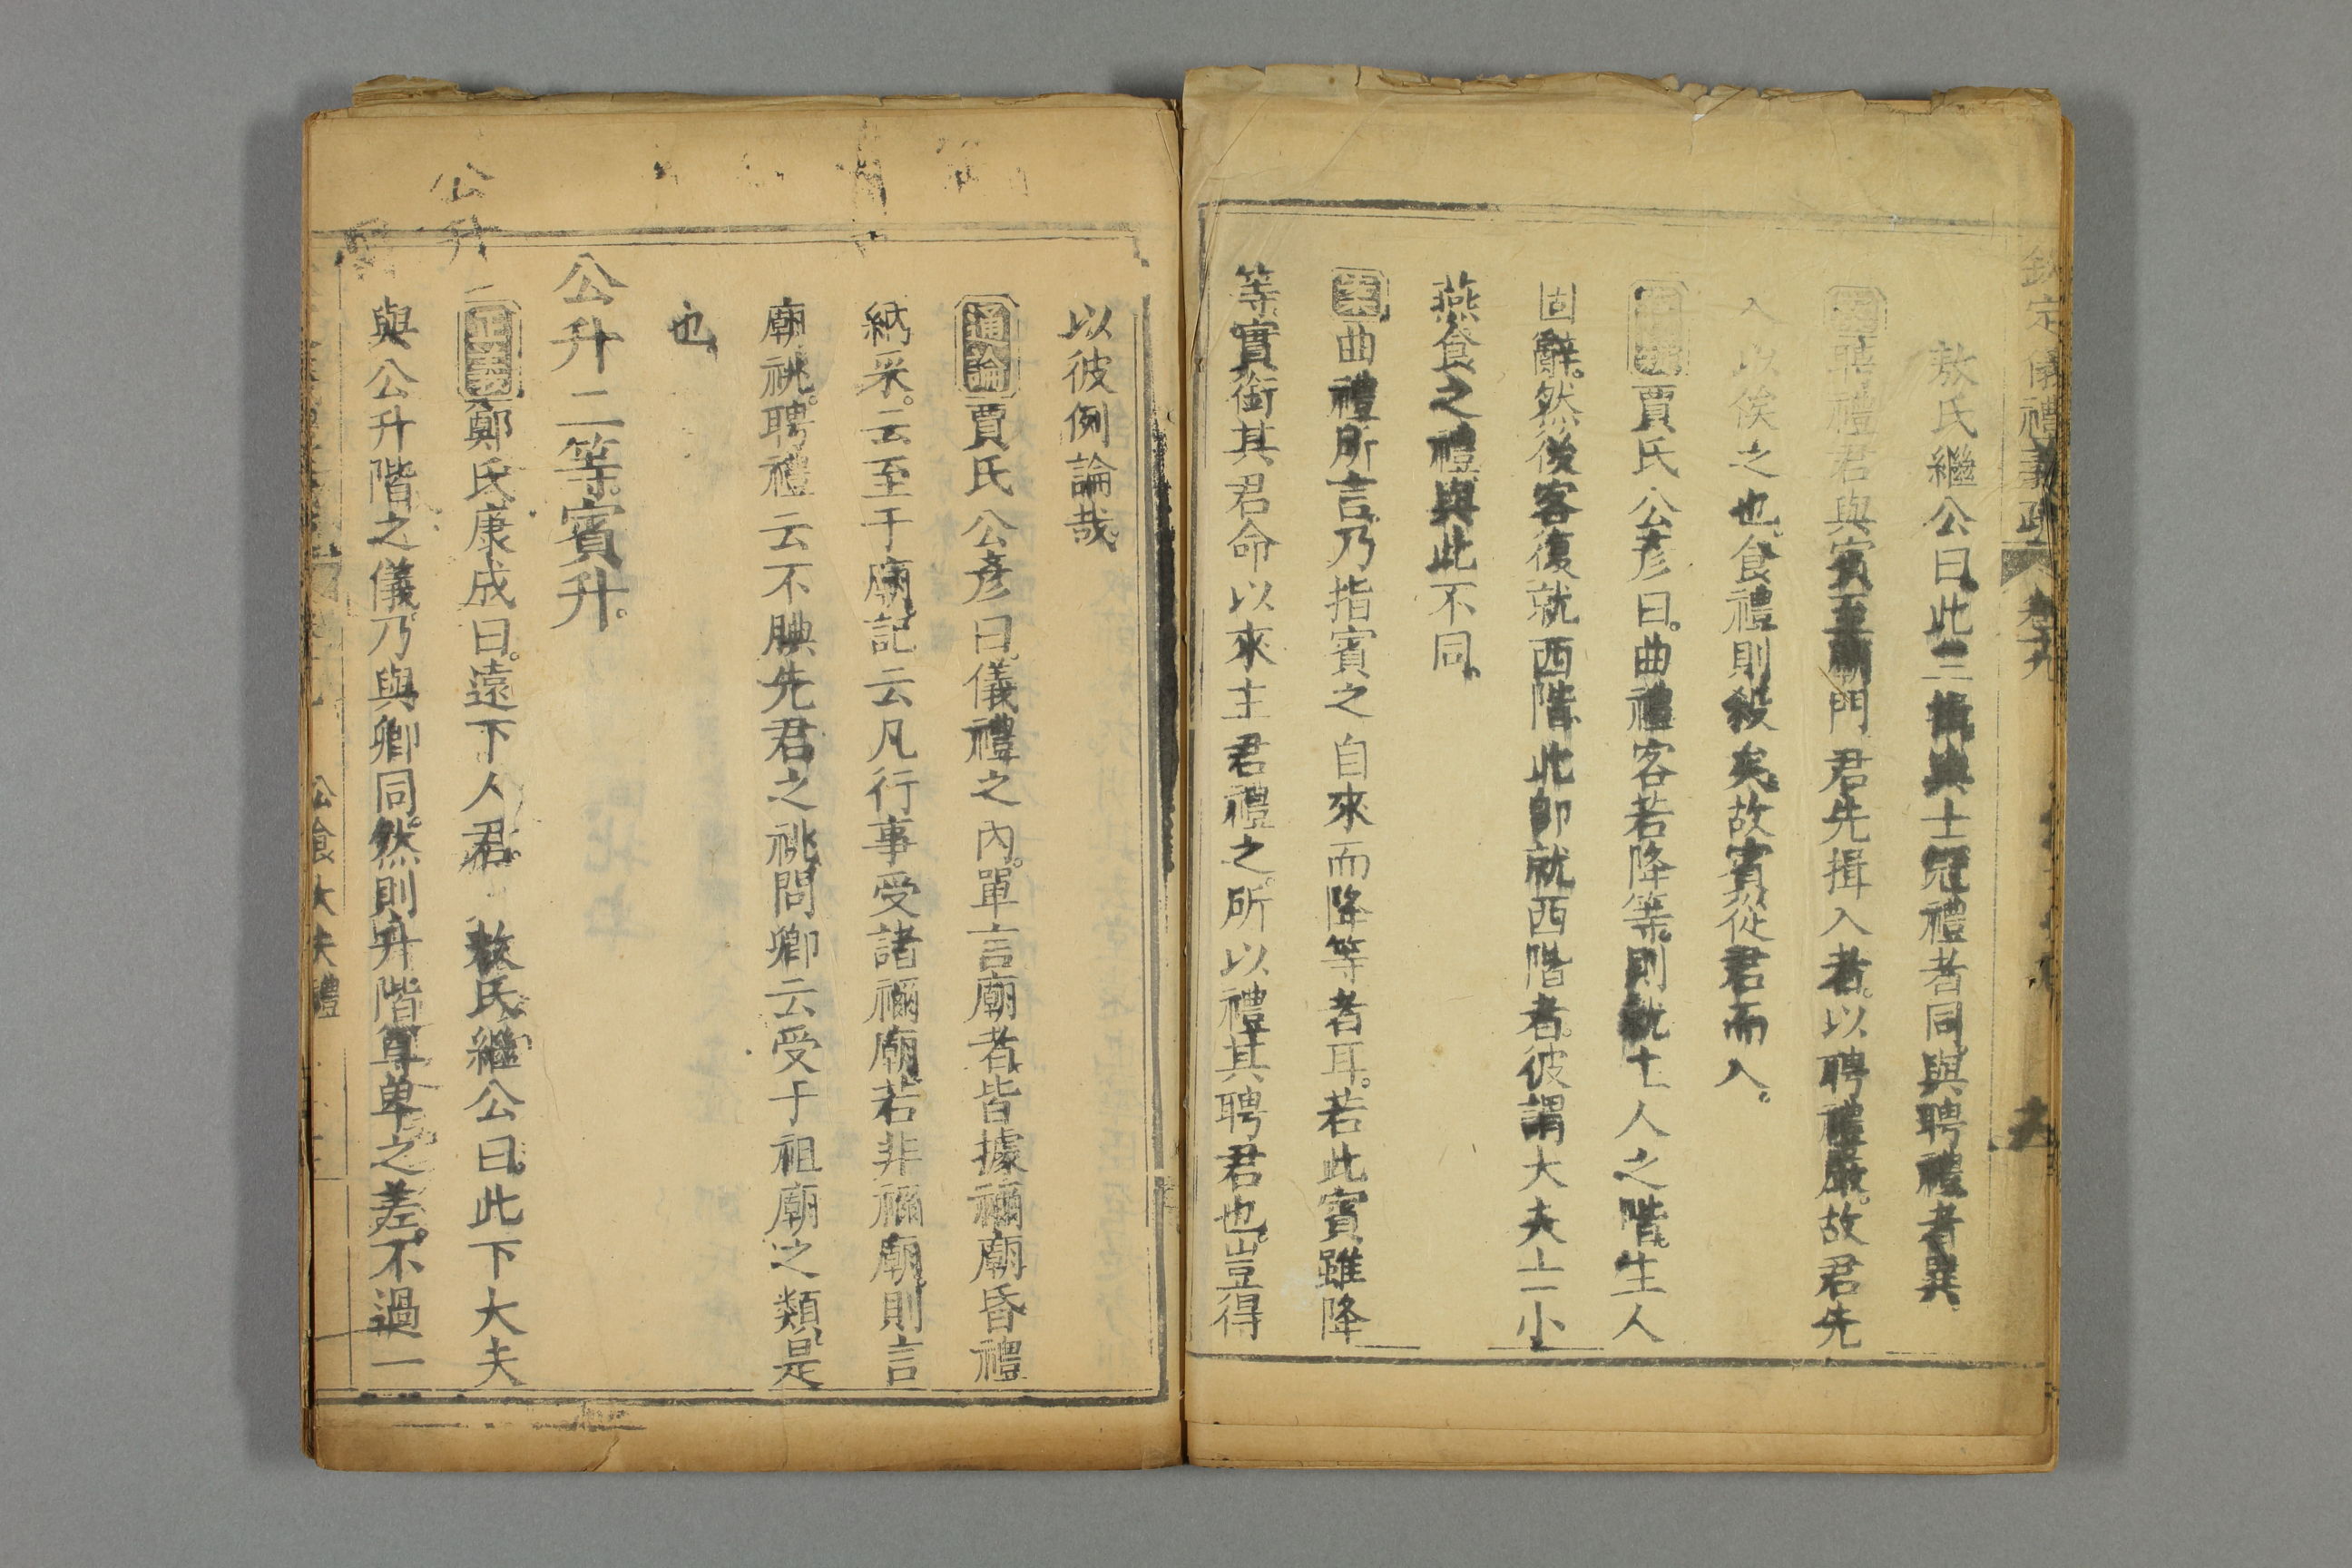 欽定儀禮義疏 卷十九
敖氏繼公曰此三揖與士冠禮者同與聘禮者異
案聘禮君與賓至廟門君先揖入者以聘禮嚴故君先
入以俟之也食禮則殺矣故賓從君而入
賈氏公彦曰曲禮客若降等則就主人之階主人
固辭然後客復就西階此卽就西階者彼謂大夫士小
燕食之禮與此不同
案曲禮所言乃指賓之自來而降等者耳若此賓雖降
等實銜其君命以來主君禮之所以禮其聘君也豈得
以彼例論哉
通論賈氏公彦曰儀禮之內單言廟者皆據禰廟昏禮
納采云至于廟記云凡行事受諸禰廟若非禰廟則言
廟祧聘禮云不腆先君之祧問卿云受于祖廟之類是
也
公升二等賓升
正義鄭氏康成曰遠下人君 敖氏繼公曰此下大夫
與公升階之儀乃與卿同然則升階尊卑之差不過一
公食大夫禮
公升